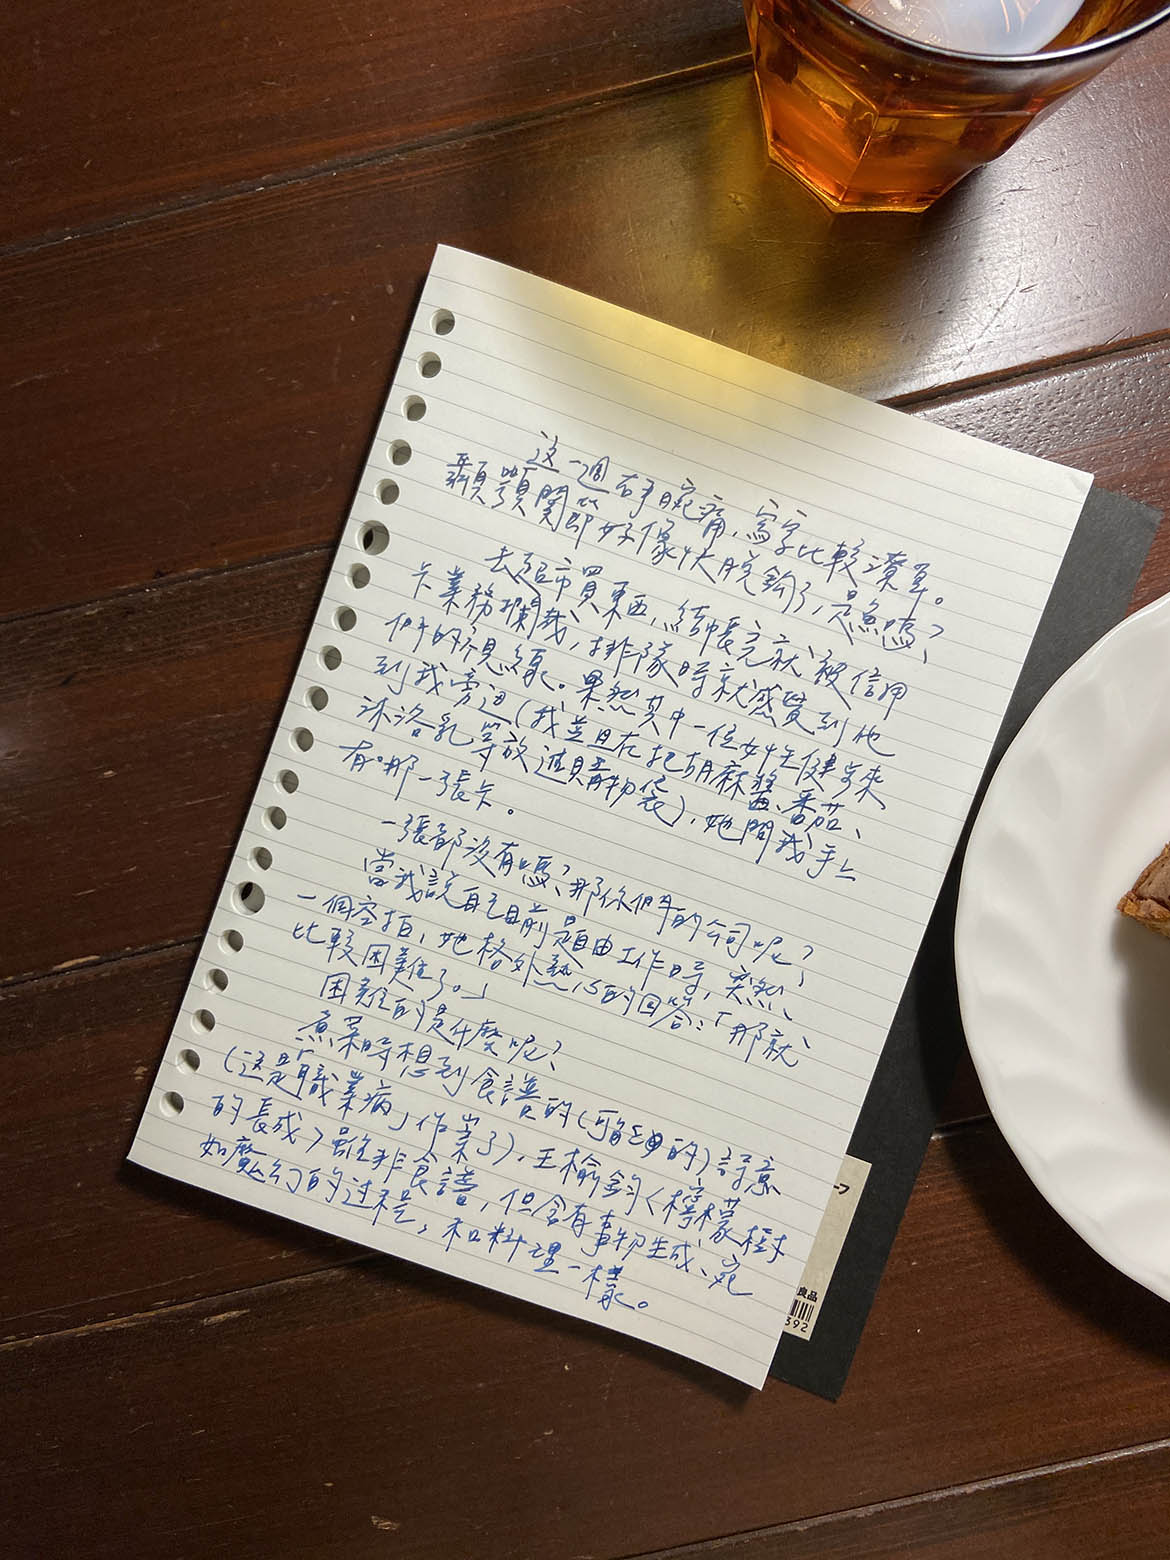 這一週右手腕痛，寫字比較潦草。
顳顎關節好像快脫鉤了，是魚嗎？
去超市買東西，結帳完就被信用
卡業務攔截，排隊時就感覺到他
們的視線。果然其中一位女性健步來
到我旁邊（我並且在把胡麻醬、番茄、
沐浴乳等放進購物袋），她問我手上
有哪一張卡。
一張都沒有嗎？那你們的公司呢？
當我說自己目前是自由工作時，突然、
一個空拍，她格外熱心的回答：「那就
比較困難了。」
困難的是什麼呢？
煮菜時想到食譜的（可能的）詩意
（這是「職業病」作祟了），王榆鈞〈檸檬樹
的長成〉雖非食譜，但含有事物生成、宛
如魔幻的過程，和料理一樣。
良品
392